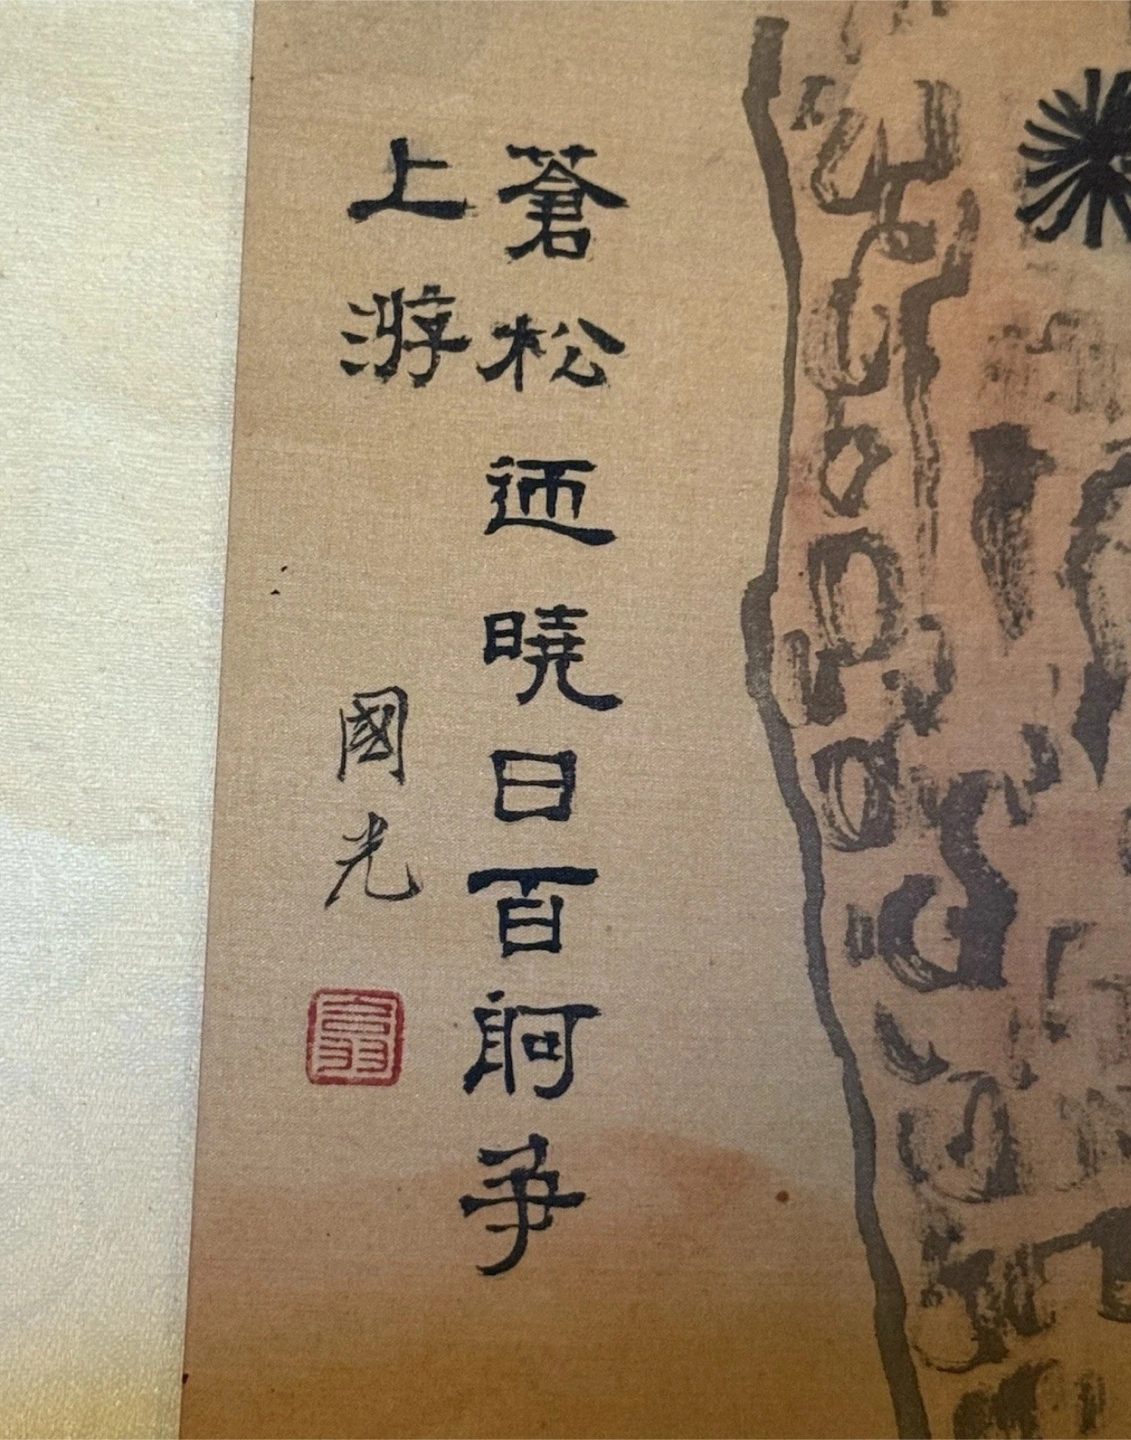 蒼松迎曉日百舸爭
上游
國光